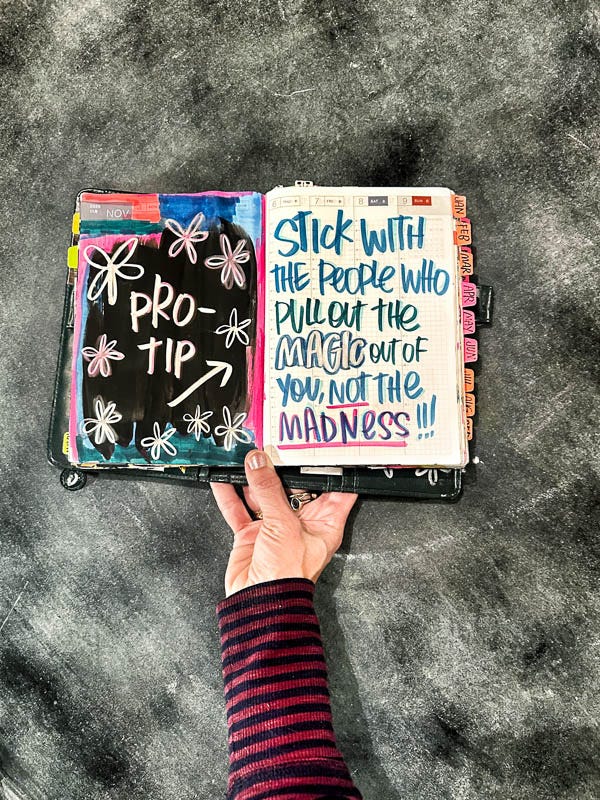 NOV
PRO-
TIP
6 7 FRI 8 SAT 9 SUN
STICK WITH
THE PEOPLE WHO
PULL OUT THE
MAGIC OUT OF
YOU, NOT THE
MADNESS!!!
JAN
FEB
MAR
APR
MAY
JUN